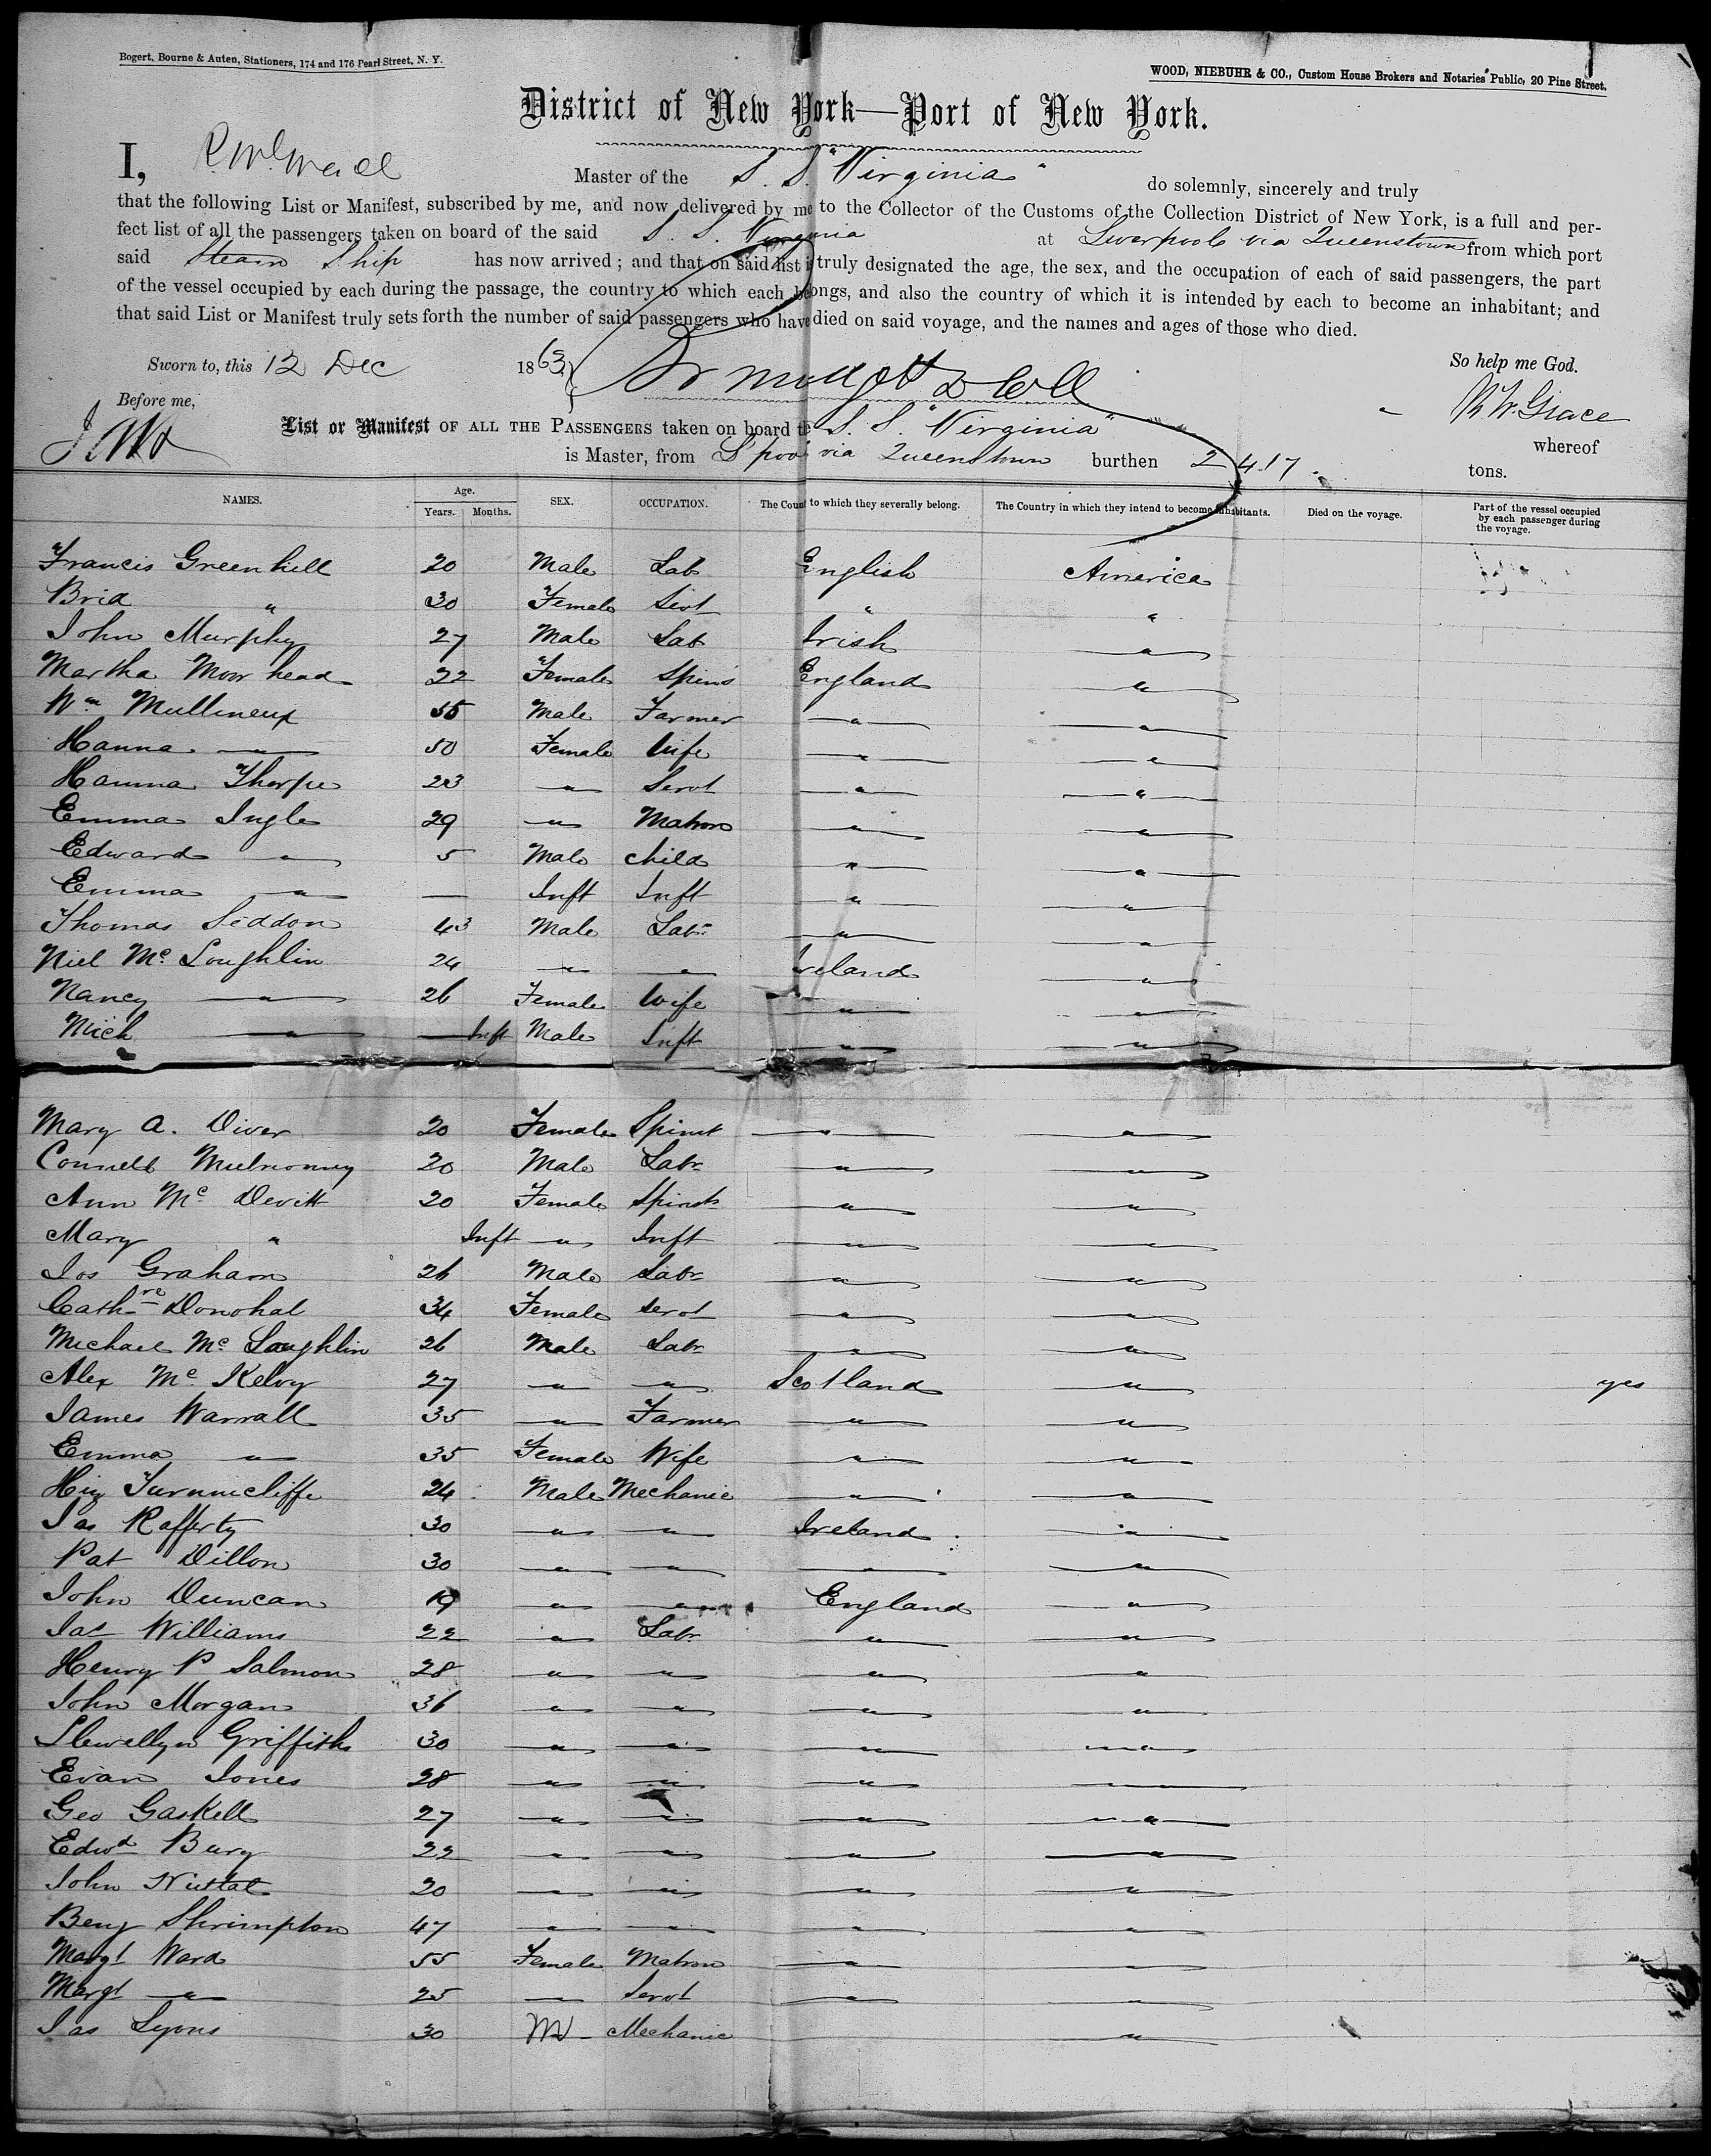 Bogert, Bourne & Auten, Stationers, 174 and 176 Pearl Street, N. Y.
WOOD, NIEBUHR & CO., Custom House Brokers and Notaries Public, 20 Pine Street.
District of New York—Port of New York.
I, Master of the S. S. "Virginia" do solemnly, sincerely and truly
that the following List or Manifest, subscribed by me, and now delivered by me to the Collector of the Customs of the Collection District of New York, is a full and per-
fect list of all the passengers taken on board of the said S. S. Virginia at Liverpool via Queenstown from which port
said Steam Ship has now arrived; and that on said list is truly designated the age, the sex, and the occupation of each of said passengers, the part
of the vessel occupied by each during the passage, the country to which each belongs, and also the country of which it is intended by each to become an inhabitant; and
that said List or Manifest truly sets forth the number of said passengers who have died on said voyage, and the names and ages of those who died.
Sworn to, this 12 Dec 1863 So help me God.
Before me, R W. Grace
List or Manifest OF ALL THE PASSENGERS taken on board the S. S. "Virginia" whereof
is Master, from L'pool via Queenstown burthen 2417 tons.
NAMES. Age. Years. Months. SEX. OCCUPATION. The Country to which they severally belong. The Country in which they intend to become inhabitants. Died on the voyage. Part of the vessel occupied by each passenger during the voyage.
Francis Greenhill 20 Male Lab English America
Brid " 30 Female Servt " "
John Murphy 27 Male Lab Irish "
Martha Moorhead 22 Female Spins England "
Wm Mullineux 55 Male Farmer " "
Hanna " 50 Female Wife " "
Hanna Thorpe 23 " Servt " "
Emma Ingle 29 " Matron " "
Edward " 5 Male Child " "
Emma " — Inft Inft " "
Thomas Seddon 43 Male Labr " "
Niel Mc Loughlin 24 " " Ireland "
Nancy " 26 Female Wife " "
Mich " — Inft Male Inft " "
Mary A. Diver 20 Female Spinst " "
Connell Mulronney 20 Male Labr " "
Ann Mc Devitt 20 Female Spinst " "
Mary " Inft " Inft " "
Jos Graham 26 Male Labr " "
Cathre Donohal 34 Female Servt " "
Michael Mc Loughlin 26 Male Labr " "
Alex Mc Kelvy 27 " " Scotland " yes
James Warrall 35 " Farmer " "
Emma " 35 Female Wife " "
Hy Turnnicliffe 24 Male Mechanic " "
Jas Rafferty 30 " " Ireland "
Pat Dillon 30 " " " "
John Duncan 19 " " England "
Jas Williams 22 " Labr " "
Henry P Salmon 28 " " " "
John Morgan 36 " " " "
Llewellyn Griffiths 30 " " " "
Evan Jones 28 " " " "
Geo Gaskell 27 " " " "
Edwd Bury 22 " " " "
John Nuttal 20 " " " "
Benj Shrimpton 47 " " " "
Margt Ward 55 Female Matron " "
Margt " 25 " Servt " "
Jas Lyons 30 M Mechanic "